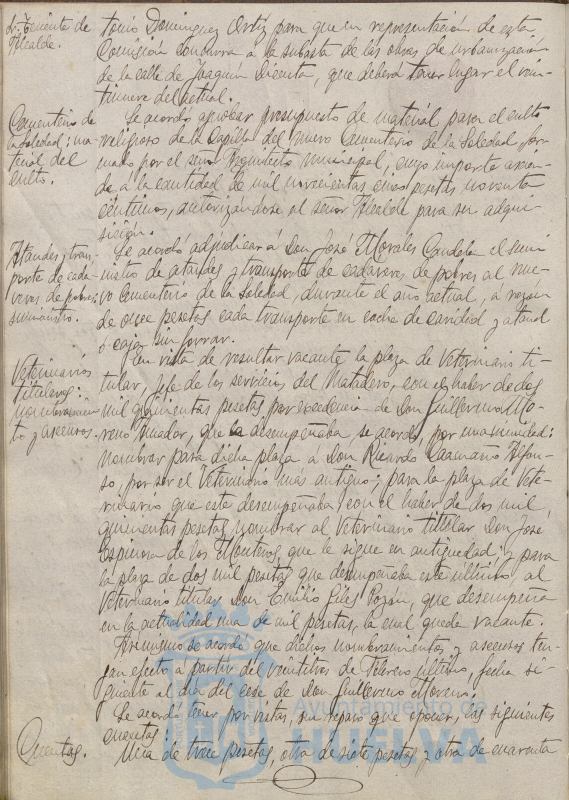 tonio Dominguez Ortiz para que en representación de esta
Comisión concurra a la subasta de las obras de urbanización
de la calle de Joaquin Dicenta, que deberá tener lugar el vein-
tinueve del actual.
Cementerio de
la Soledad: ma-
terial del
culto.
Se acordó aprobar presupuesto de material para el culto
religioso de la Capilla del nuevo Cementerio de la Soledad, for-
mado por el señor Arquitecto municipal, cuyo importe ascien-
de a la cantidad de mil novecientas once pesetas noventa
centimos, autorizándose al señor Alcalde para su adqui-
sición.
Ataudes y trans-
porte de cada-
veres de pobres:
suministro.
Se acordó adjudicar á Don José Morales Candela el sumi-
nistro de ataudes y transporte de cadaveres de pobres al nue-
vo Cementerio de la Soledad, durante el año actual, á razón
de once pesetas cada transporte en coche de caridad y ataud
ó cajas sin forrar.
Veterinarios
titulares:
nombramien-
to y ascensos.
En vista de resultar vacante la plaza de Veterinario ti-
tular, jefe de los servicios del Matadero, con el haber de dos
mil quinientas pesetas por excedencia de Don Guillermo Mo-
reno Amador, que la desempeñaba se acordó, por unanimidad:
nombrar para dicha plaza á Don Ricardo Caamano Alfon-
so, por ser el Veterinario más antiguo; para la plaza de Vete-
rinario que este desempeñaba, con el haber de dos mil
quinientas pesetas, nombrar al Veterinario titular Don José
Espinosa de los Monteros, que le sigue en antiguedad; y para
la plaza de dos mil pesetas que desempeñaba este ultimo, al
Veterinario titular Don Emilio Giles Pozón, que desempeña
en la actualidad una de mil pesetas, la cual queda vacante.
Asimismo se acordó que dichos nombramientos y ascensos ten-
gan efecto á partir del veintitres de Febrero ultimo, fecha si-
guiente al dia del cese de Don Guillermo Moreno.
Cuentas.
Se acordó tener por vistas, sin reparo que oponer, las siguientes
cuentas:
Una de trece pesetas, otra de siete pesetas y otra de cuarenta
Ayuntamiento de
HUELVA